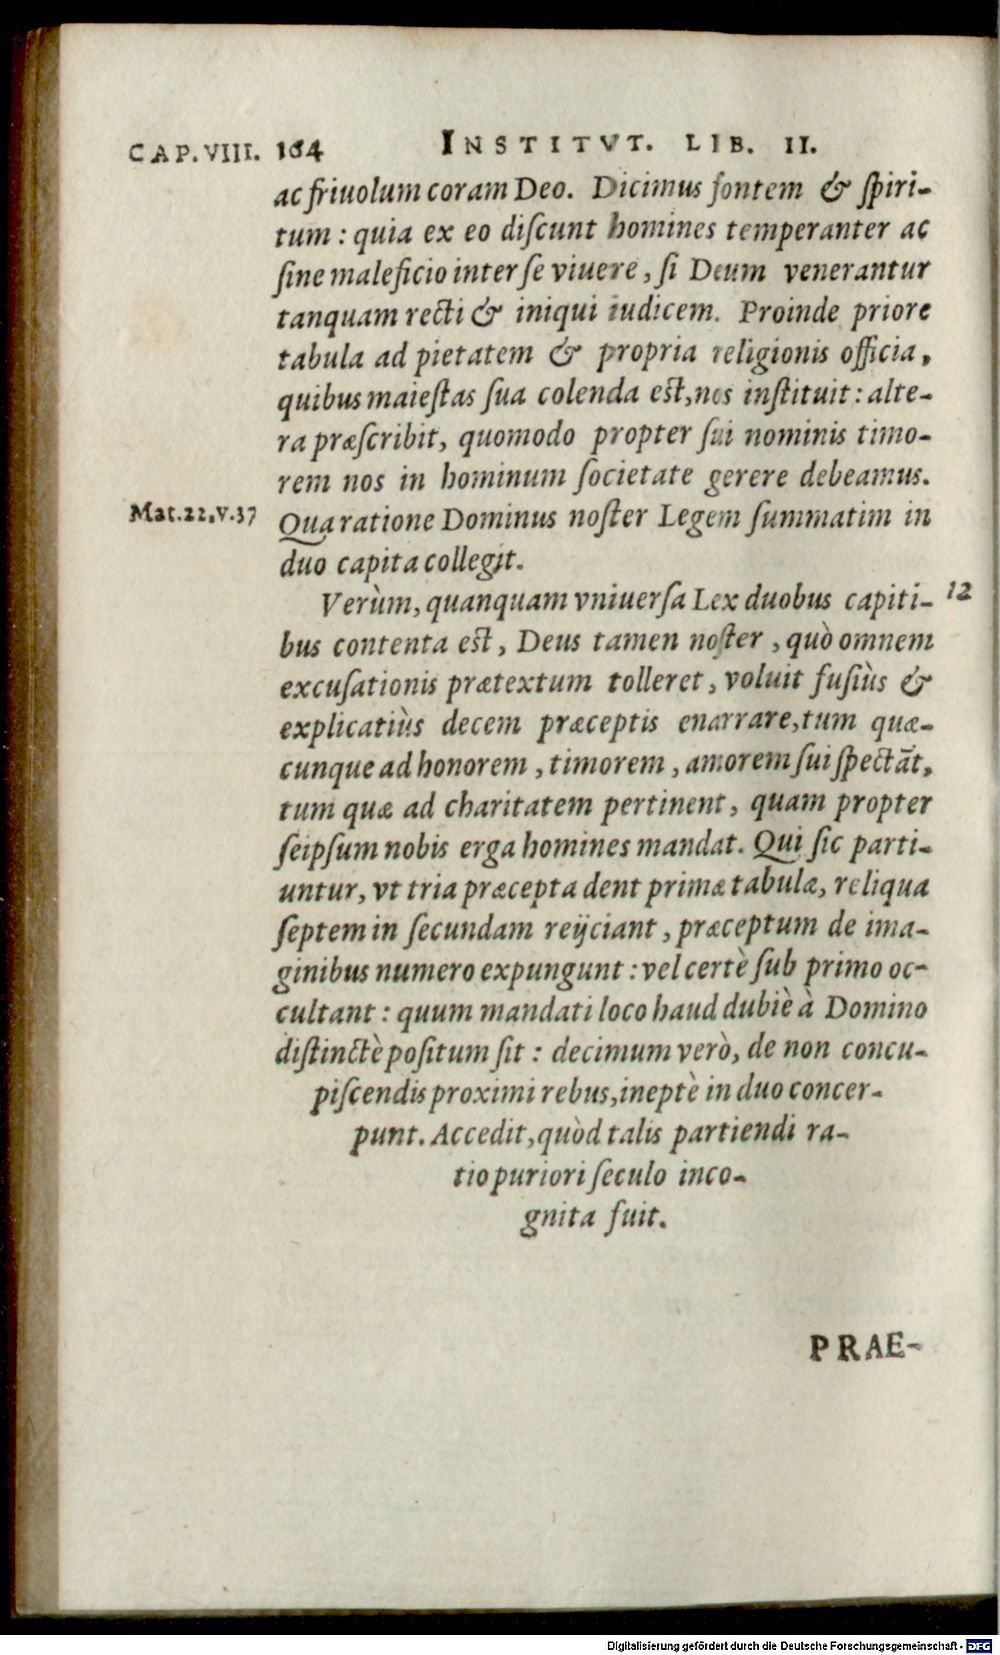 CAP.VIII. 164 INSTITVT. LIB. II.
ac friuolum coram Deo. Dicimus fontem & ſpiri-
tum : quia ex eo diſcunt homines temperanter ac
ſine maleficio inter ſe viuere, ſi Deum venerantur
tanquam recti & iniqui iudicem. Proinde priore
tabula ad pietatem & propria religionis officia,
quibus maieſtas ſua colenda eſt, nos inſtituit : alte-
ra præſcribit, quomodo propter ſui nominis timo-
rem nos in hominum ſocietate gerere debeamus.
Mat.22.v.37 Qua ratione Dominus noſter Legem ſummatim in
duo capita collegit.
Verùm, quanquam vniuerſa Lex duobus capiti- 12
bus contenta eſt, Deus tamen noſter, quò omnem
excuſationis prætextum tolleret, voluit fuſiùs &
explicatiùs decem præceptis enarrare, tum quæ-
cunque ad honorem, timorem, amorem ſui ſpectāt,
tum quæ ad charitatem pertinent, quam propter
ſeipſum nobis erga homines mandat. Qui ſic parti-
untur, vt tria præcepta dent primæ tabulæ, reliqua
ſeptem in ſecundam reijciant, præceptum de ima-
ginibus numero expungunt : vel certè ſub primo oc-
cultant : quum mandati loco haud dubiè à Domino
diſtinctè poſitum ſit : decimum verò, de non concu-
piſcendis proximi rebus, ineptè in duo concer-
punt. Accedit, quòd talis partiendi ra-
tio puriori ſeculo inco-
gnita fuit.
PRAE-
Digitalisierung gefördert durch die Deutsche Forschungsgemeinschaft - DFG